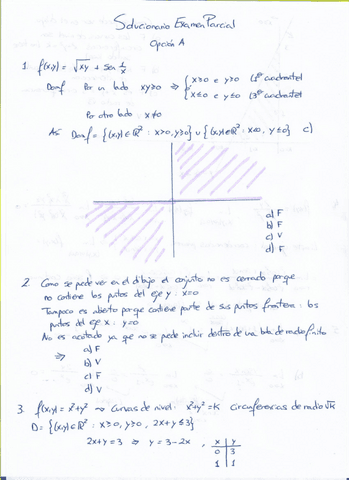 Solucionario Examen Parcial
Opción A
1. f(x,y) = √xy + sen 1/x
Domf Por un lado xy≥0 ⇒ { x≥0 e y≥0 (1er cuadrante)
x≤0 e y≤0 (3er cuadrante)
Por otro lado x≠0
Así Domf = {(x,y)∈ℝ² : x>0, y≥0} ∪ {(x,y)∈ℝ² : x<0, y≤0} c)
a) F
b) F
c) V
d) F
2. Como se puede ver en el dibujo el conjunto no es cerrado porque
no contiene los puntos del eje y : x=0
Tampoco es abierto porque contiene parte de sus puntos frontera : los
puntos del eje x : y=0
No es acotado ya que no se puede incluir dentro de una bola de radio finito
⇒ a) F
b) V
c) F
d) V
3. f(x,y) = x²+y² → Curvas de nivel : x²+y² = K circunferencias de radio √K
D = {(x,y)∈ℝ² : x≥0, y≥0, 2x+y≤3}
2x+y = 3 ⇒ y = 3-2x , x y
0 3
1 1